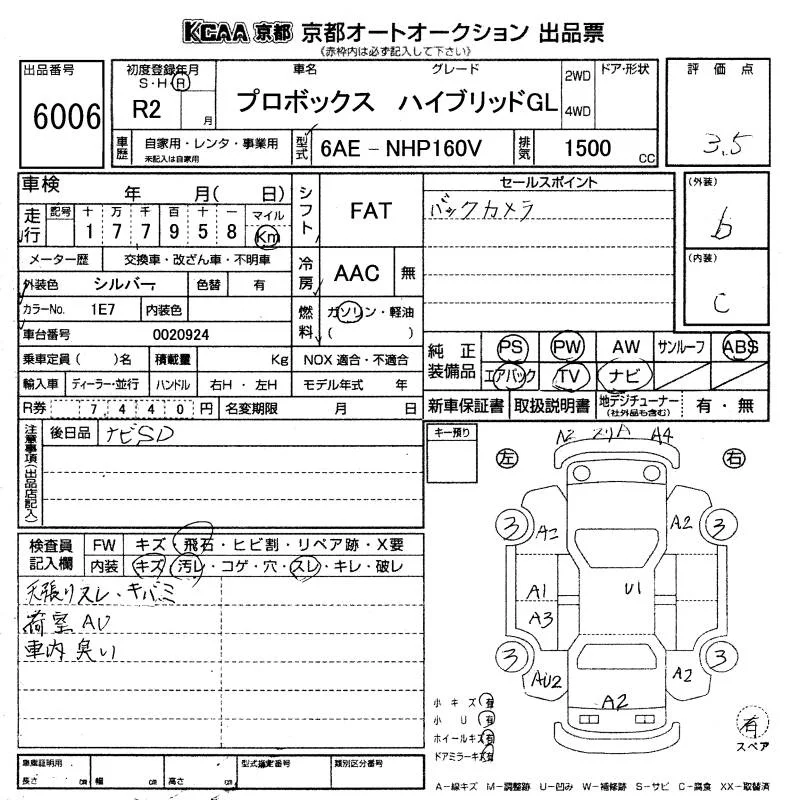 KCAA京都 京都オートオークション 出品票
《赤枠内は必ず記入して下さい》
出品番号 6006
初度登録年月 S・H・R R2 月
車名 グレード プロボックス ハイブリッドGL
2WD 4WD
ドア・形状
評価点 3.5
車歴 自家用・レンタ・事業用 未記入は自家用
型式 6AE－NHP160V
排気 1500 CC
車検 年 月( 日)
走行 記号 十万千百十一 177958 マイル Km
メーター歴 交換車・改ざん車・不明車
外装色 シルバー 色替 有
カラーNo. 1E7 内装色
車台番号 0020924
シフト FAT
冷房 AAC 無
燃料 ガソリン・軽油 ( )
セールスポイント
バックカメラ
(外装) b
(内装) C
乗車定員( )名 積載量 Kg NOX適合・不適合
輸入車 ディーラー・並行 ハンドル 右H・左H モデル年式 年
R券 7440円 名変期限 月 日
純正装備品 PS PW AW サンルーフ ABS
エアバック TV ナビ
新車保証書 取扱説明書 地デジチューナー (社外品も含む) 有・無
注意事項(出品店記入)
後日品 ナビSD
キー預り
左 右
A2 A4
3 A2 A2 3
A1 U1
A3
3 AU2 A2 A2 3
検査員記入欄 FW キズ・飛石・ヒビ割・リペア跡・X要
内装 キズ・汚レ・コゲ・穴・スレ・キレ・破レ
天張りスレ・キバミ
荷室AU
車内臭い
小キズ 有
小U 有
ホイールキズ 有
ドアミラーキズ 有
有 スペア
車庫証明用 長さ cm 幅 cm 高さ cm
型式指定番号
類別区分番号
A－線キズ M－調整跡 U－凹み W－補修跡 S－サビ C－腐食 XX－取替済